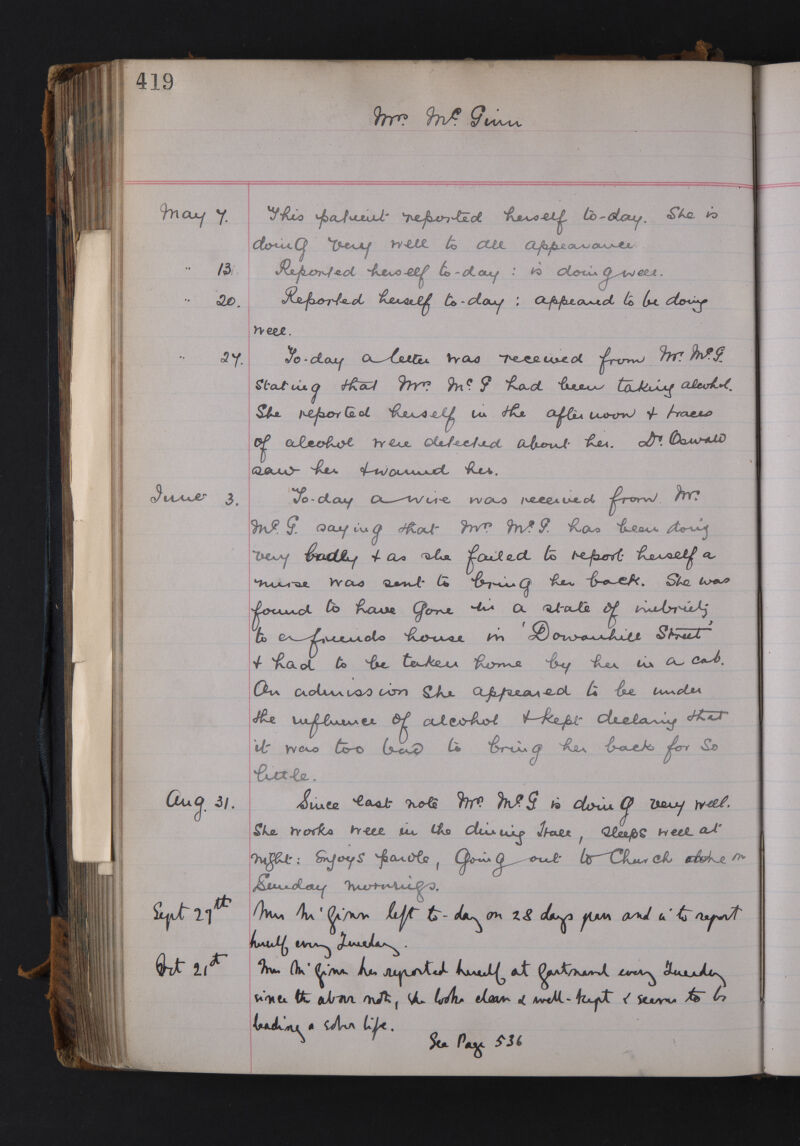 419
Mrs. McGinn
May 7. This patient reported herself to-day. She is
doing very well to all appearance.
" 13. Reported herself to-day : is doing well.
" 20. Reported herself to-day ; appeared to be doing
well.
" 27. To-day a letter was received from Mr. McG.
stating that Mrs. McG had been taking alcohol.
She reported herself in the afternoon & traces
of alcohol were detected about her. Dr. Oswald
saw her & warned her.
June 3. To-day a wire was received from Mr.
McG. saying that Mrs McG. has been doing
very badly & as she failed to report herself a
nurse was sent to bring her back. She was
found to have gone in a state of inebriety
to a friends house in 'Dowanhill Street'
& had to be taken home by her in a cab.
On admission she appeared to be under
the influence of alcohol & kept declaring that
it was too bad to bring her back for so
little.
Aug. 31. Since last note Mrs. McG is doing very well.
She works well in the dining Hall, sleeps well at
night: enjoys parole, going out to Church alone on
Sunday mornings.
Sept 27th Mrs McGinn left to-day on 28 days pass and is to report
herself every Tuesday.
Oct 21st Mrs McGinn has reported herself at Gartnavel every Tuesday
since the above note, she looks clean & well-kept & seems to be
leading a sober life.
See Page 536